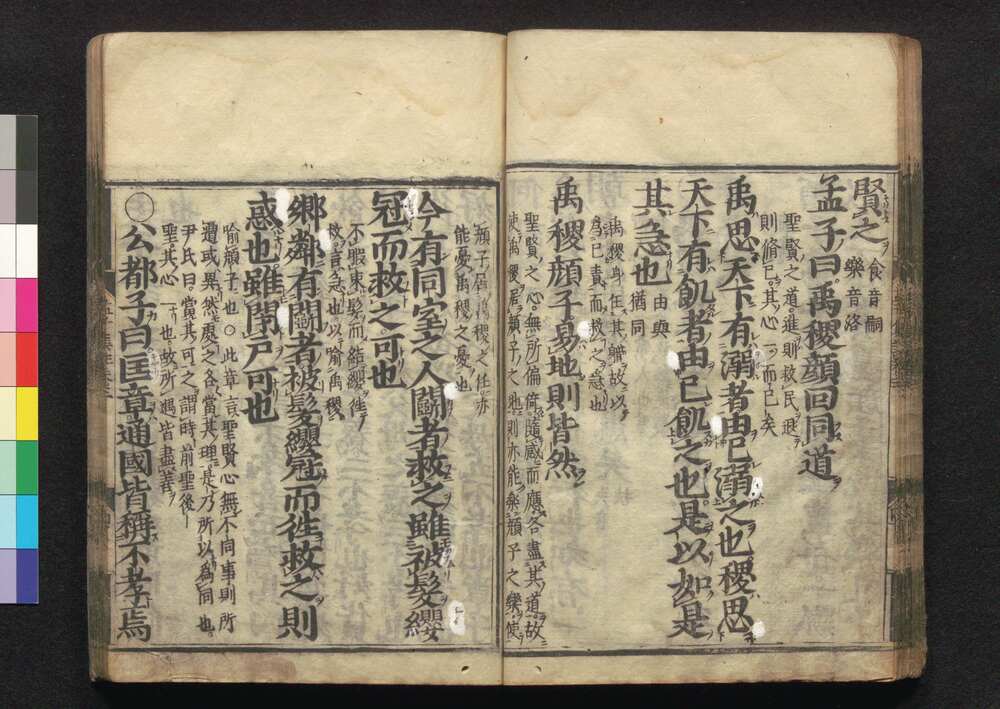 賢之 食音嗣 樂音洛
孟子曰禹稷顏回同道
聖賢之道進則救民退
則修已其心一而已矣
禹思天下有溺者由已溺之也稷思
天下有飢者由已飢之也是以如是
其急也 由與猶同
禹稷身任其職故以
爲已責而救之急也
禹稷顏子易地則皆然
聖賢之心無所偏倚隨感而應各盡其道故
使禹稷居顏子之地則亦能樂顏子之樂使
顏子居禹稷之任亦
能憂禹稷之憂也
今有同室之人鬪者救之雖被髮纓
冠而救之可也
不暇束髮而結纓徃
救言急也以喻禹稷
鄉鄰有鬪者被髮纓冠而徃救之則
惑也雖閉戶可也
喻顏子也○此章言聖賢心無不同事則所
遭或異然處之各當其理是乃所以爲同也
尹氏曰當其可之謂時前聖後
聖其心一也故所遇皆盡善
○公都子曰匡章通國皆稱不孝焉